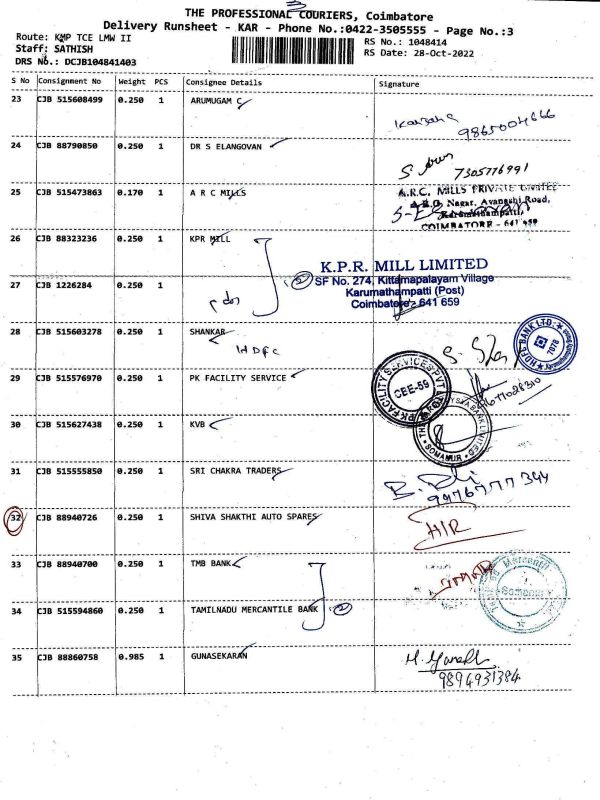 THE PROFESSIONAL COURIERS, Coimbatore
Delivery Runsheet - KAR - Phone No.:0422-3505555 - Page No.:3
Route: KMP TCE LMW II
RS No.: 1048414
Staff: SATHISH
RS Date: 28-Oct-2022
DRS No.: DCJB104841403
S No Consignment No Weight PCS Consignee Details Signature
23 CJB 515608499 0.250 1 ARUMUGAM C
9865004666
24 CJB 88790850 0.250 1 DR S ELANGOVAN
7305776991
25 CJB 515473863 0.170 1 A R C MILLS
A.R.C. MILLS PRIVATE LIMITED
Nagar, Avanashi Road,
Karumathampatti,
COIMBATORE - 641 659
26 CJB 88323236 0.250 1 KPR MILL
K.P.R. MILL LIMITED
SF No. 274, Kittampalayam Village
Karumathampatti (Post)
Coimbatore - 641 659
27 CJB 1226284 0.250 1
2
28 CJB 515603278 0.250 1 SHANKAR
HDFC
HDFC BANK LTD.
7078
29 CJB 515576970 0.250 1 PK FACILITY SERVICE
PK FACILITY SERVICES PVT LTD
CEE-59
30 CJB 515627438 0.250 1 KVB
SOMANUR
31 CJB 515555850 0.250 1 SRI CHAKRA TRADERS
9976777344
32 CJB 88940726 0.250 1 SHIVA SHAKTHI AUTO SPARES
H/R
33 CJB 88940700 0.250 1 TMB BANK
34 CJB 515594860 0.250 1 TAMILNADU MERCANTILE BANK
2
35 CJB 88860758 0.985 1 GUNASEKARAN
9894931384